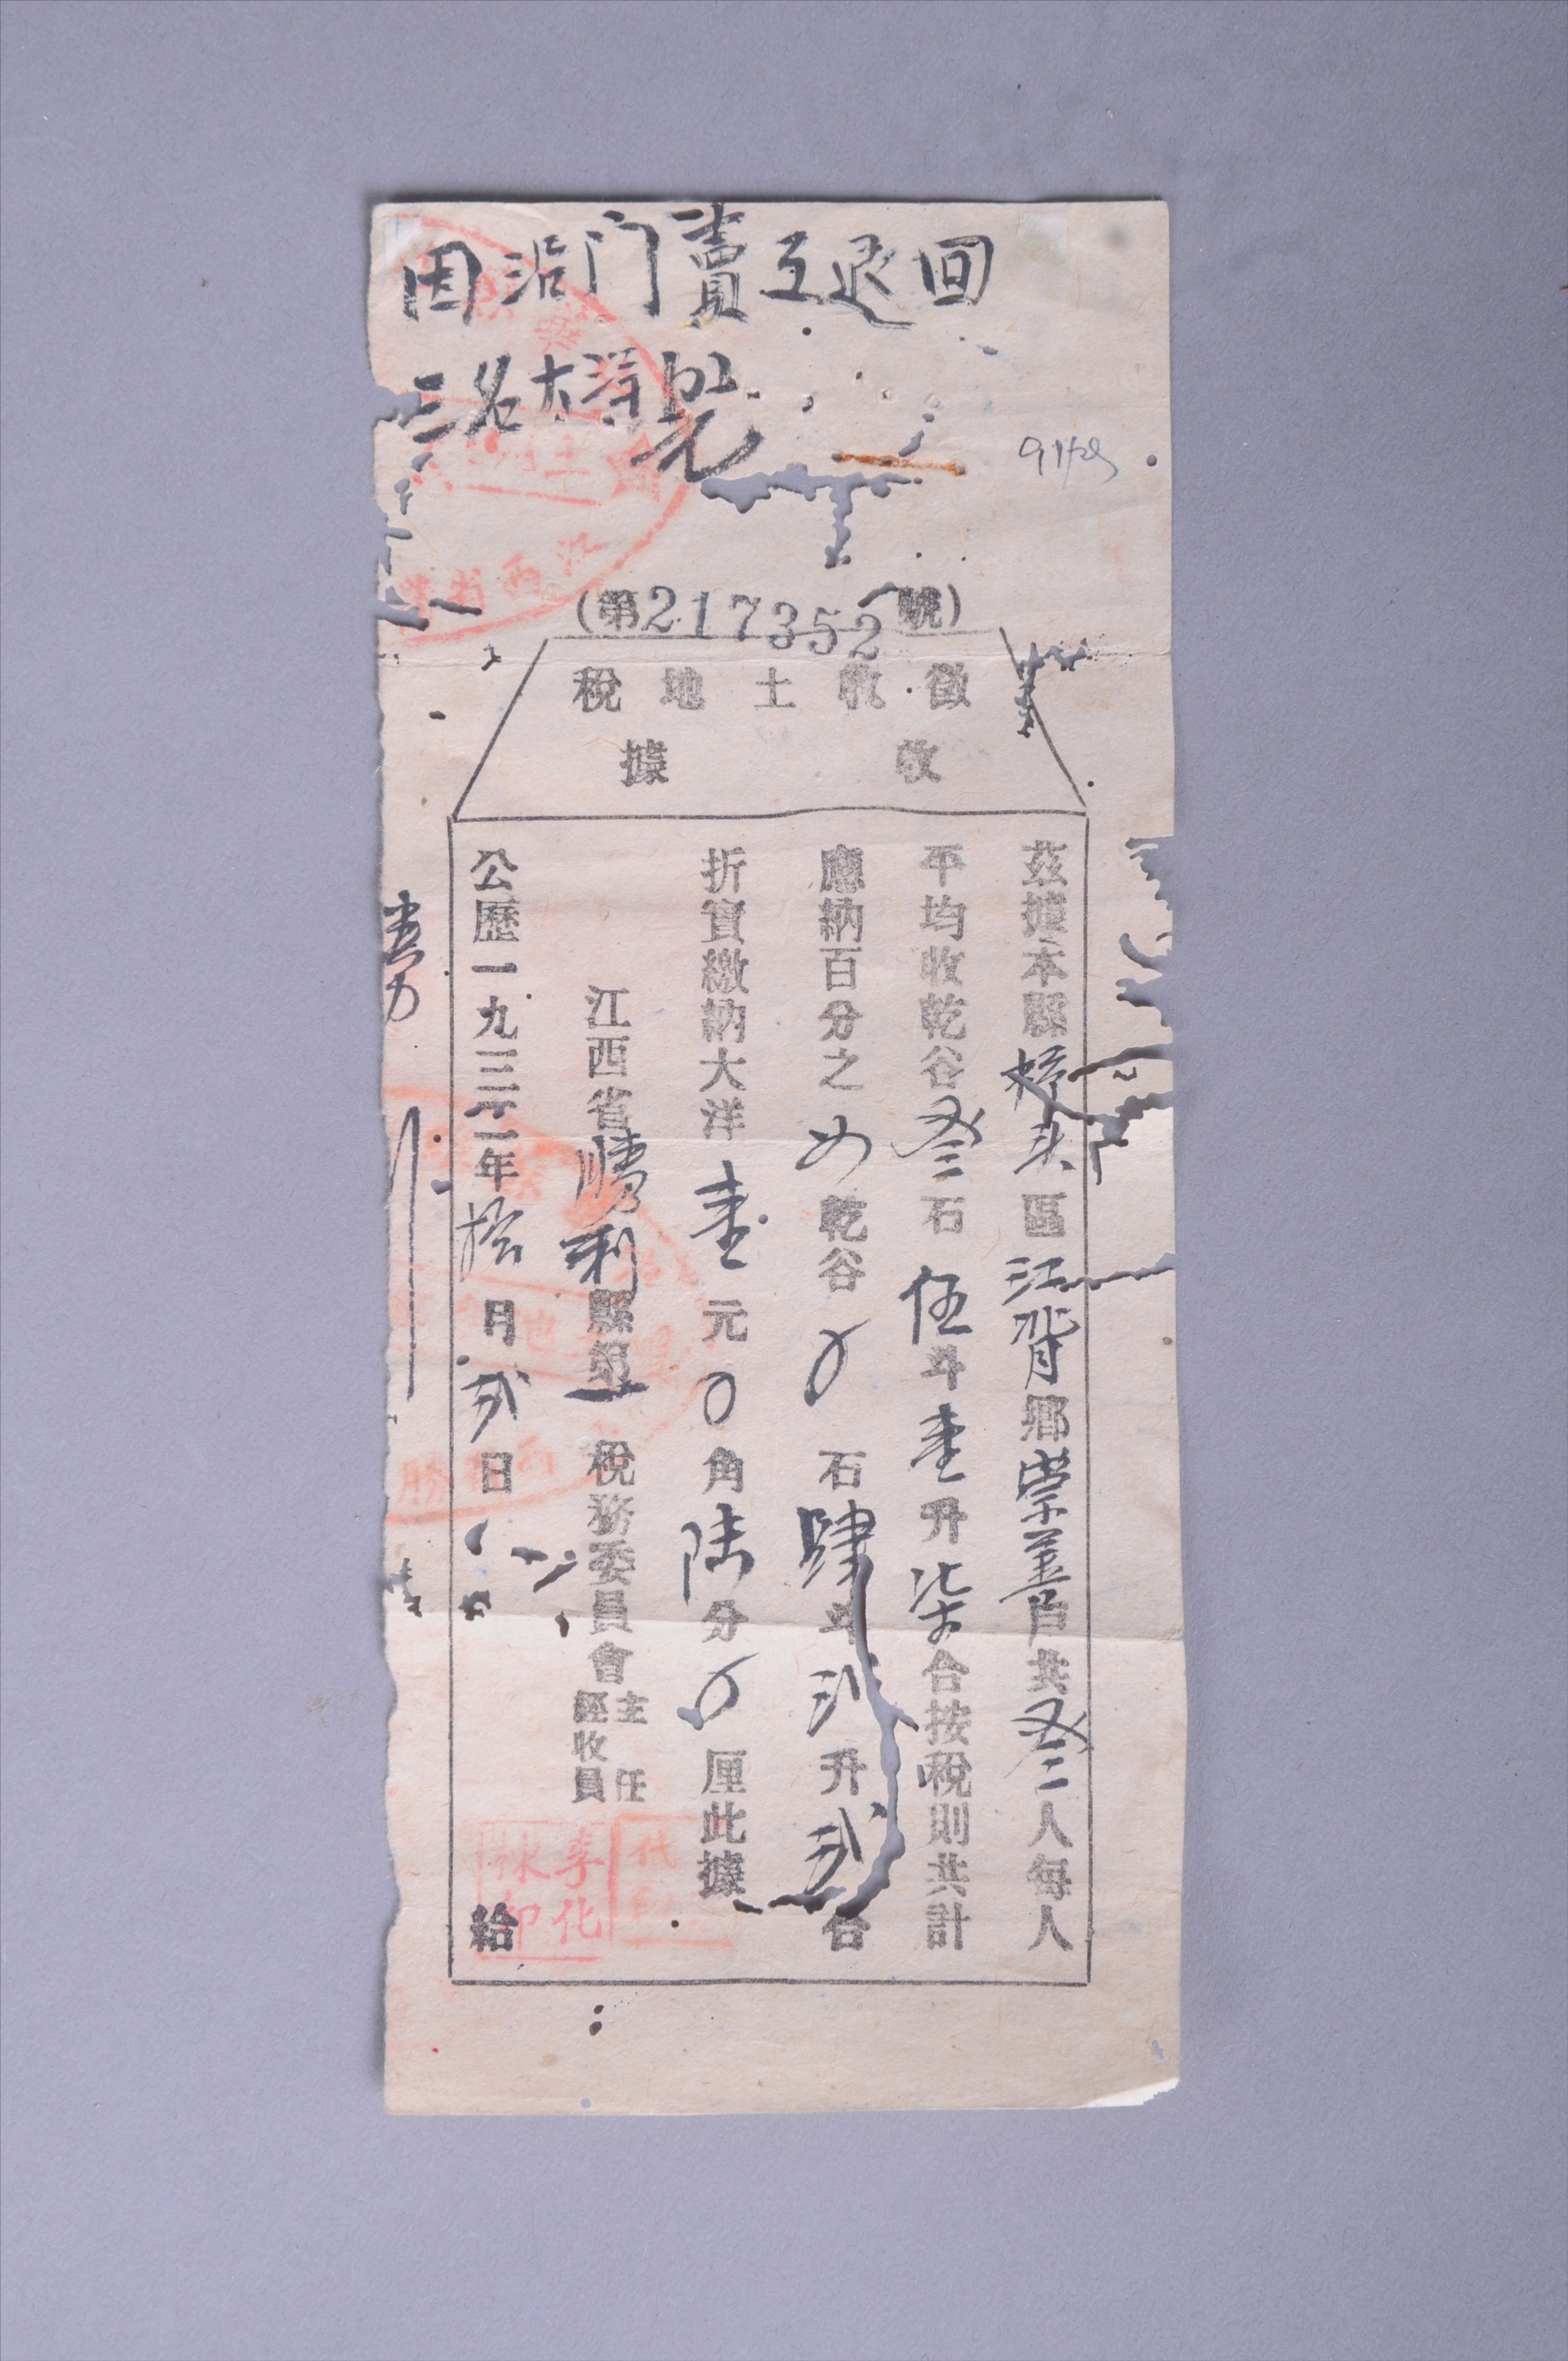 因沿门賣互退回
三名大洋
(第217352號)
徵收土地稅
收據
茲據本縣橋头區江背鄉崇善戶共叁人每人
平均收乾谷叁石伍斗壹升柒合按稅則共計
應納百分之乾谷0石肆斗弍升弍合
折實繳納大洋壹元0角陆分0厘此據
江西省勝利縣第一稅務委員會主任
經收員
公歷一九三二年拾月弍日
給
李化
林印